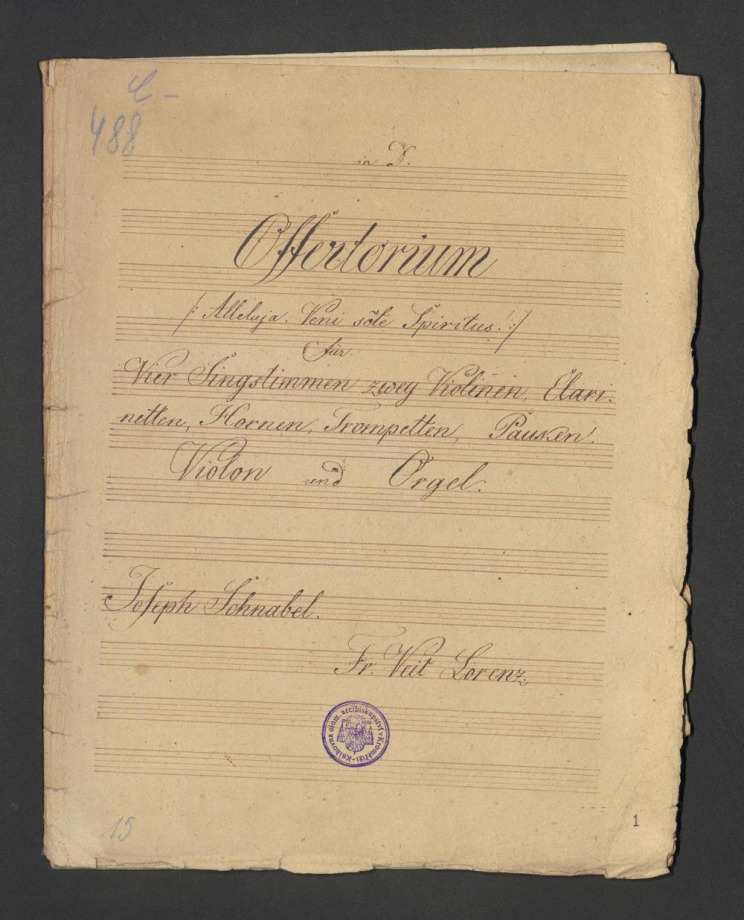 C –
488
in D.
Offertorium
/: Alleluja. Veni sõte Spiritus! :/
für
Vier Singstimmen zwey Violinen, Clari-
netten, Hornen, Trompetten, Pauken.
Violon und Orgel.
Joseph Schnabel.
Fr. Veit Lorenz
Knihovna olom. arcibiskupství v Kroměříži
15
1